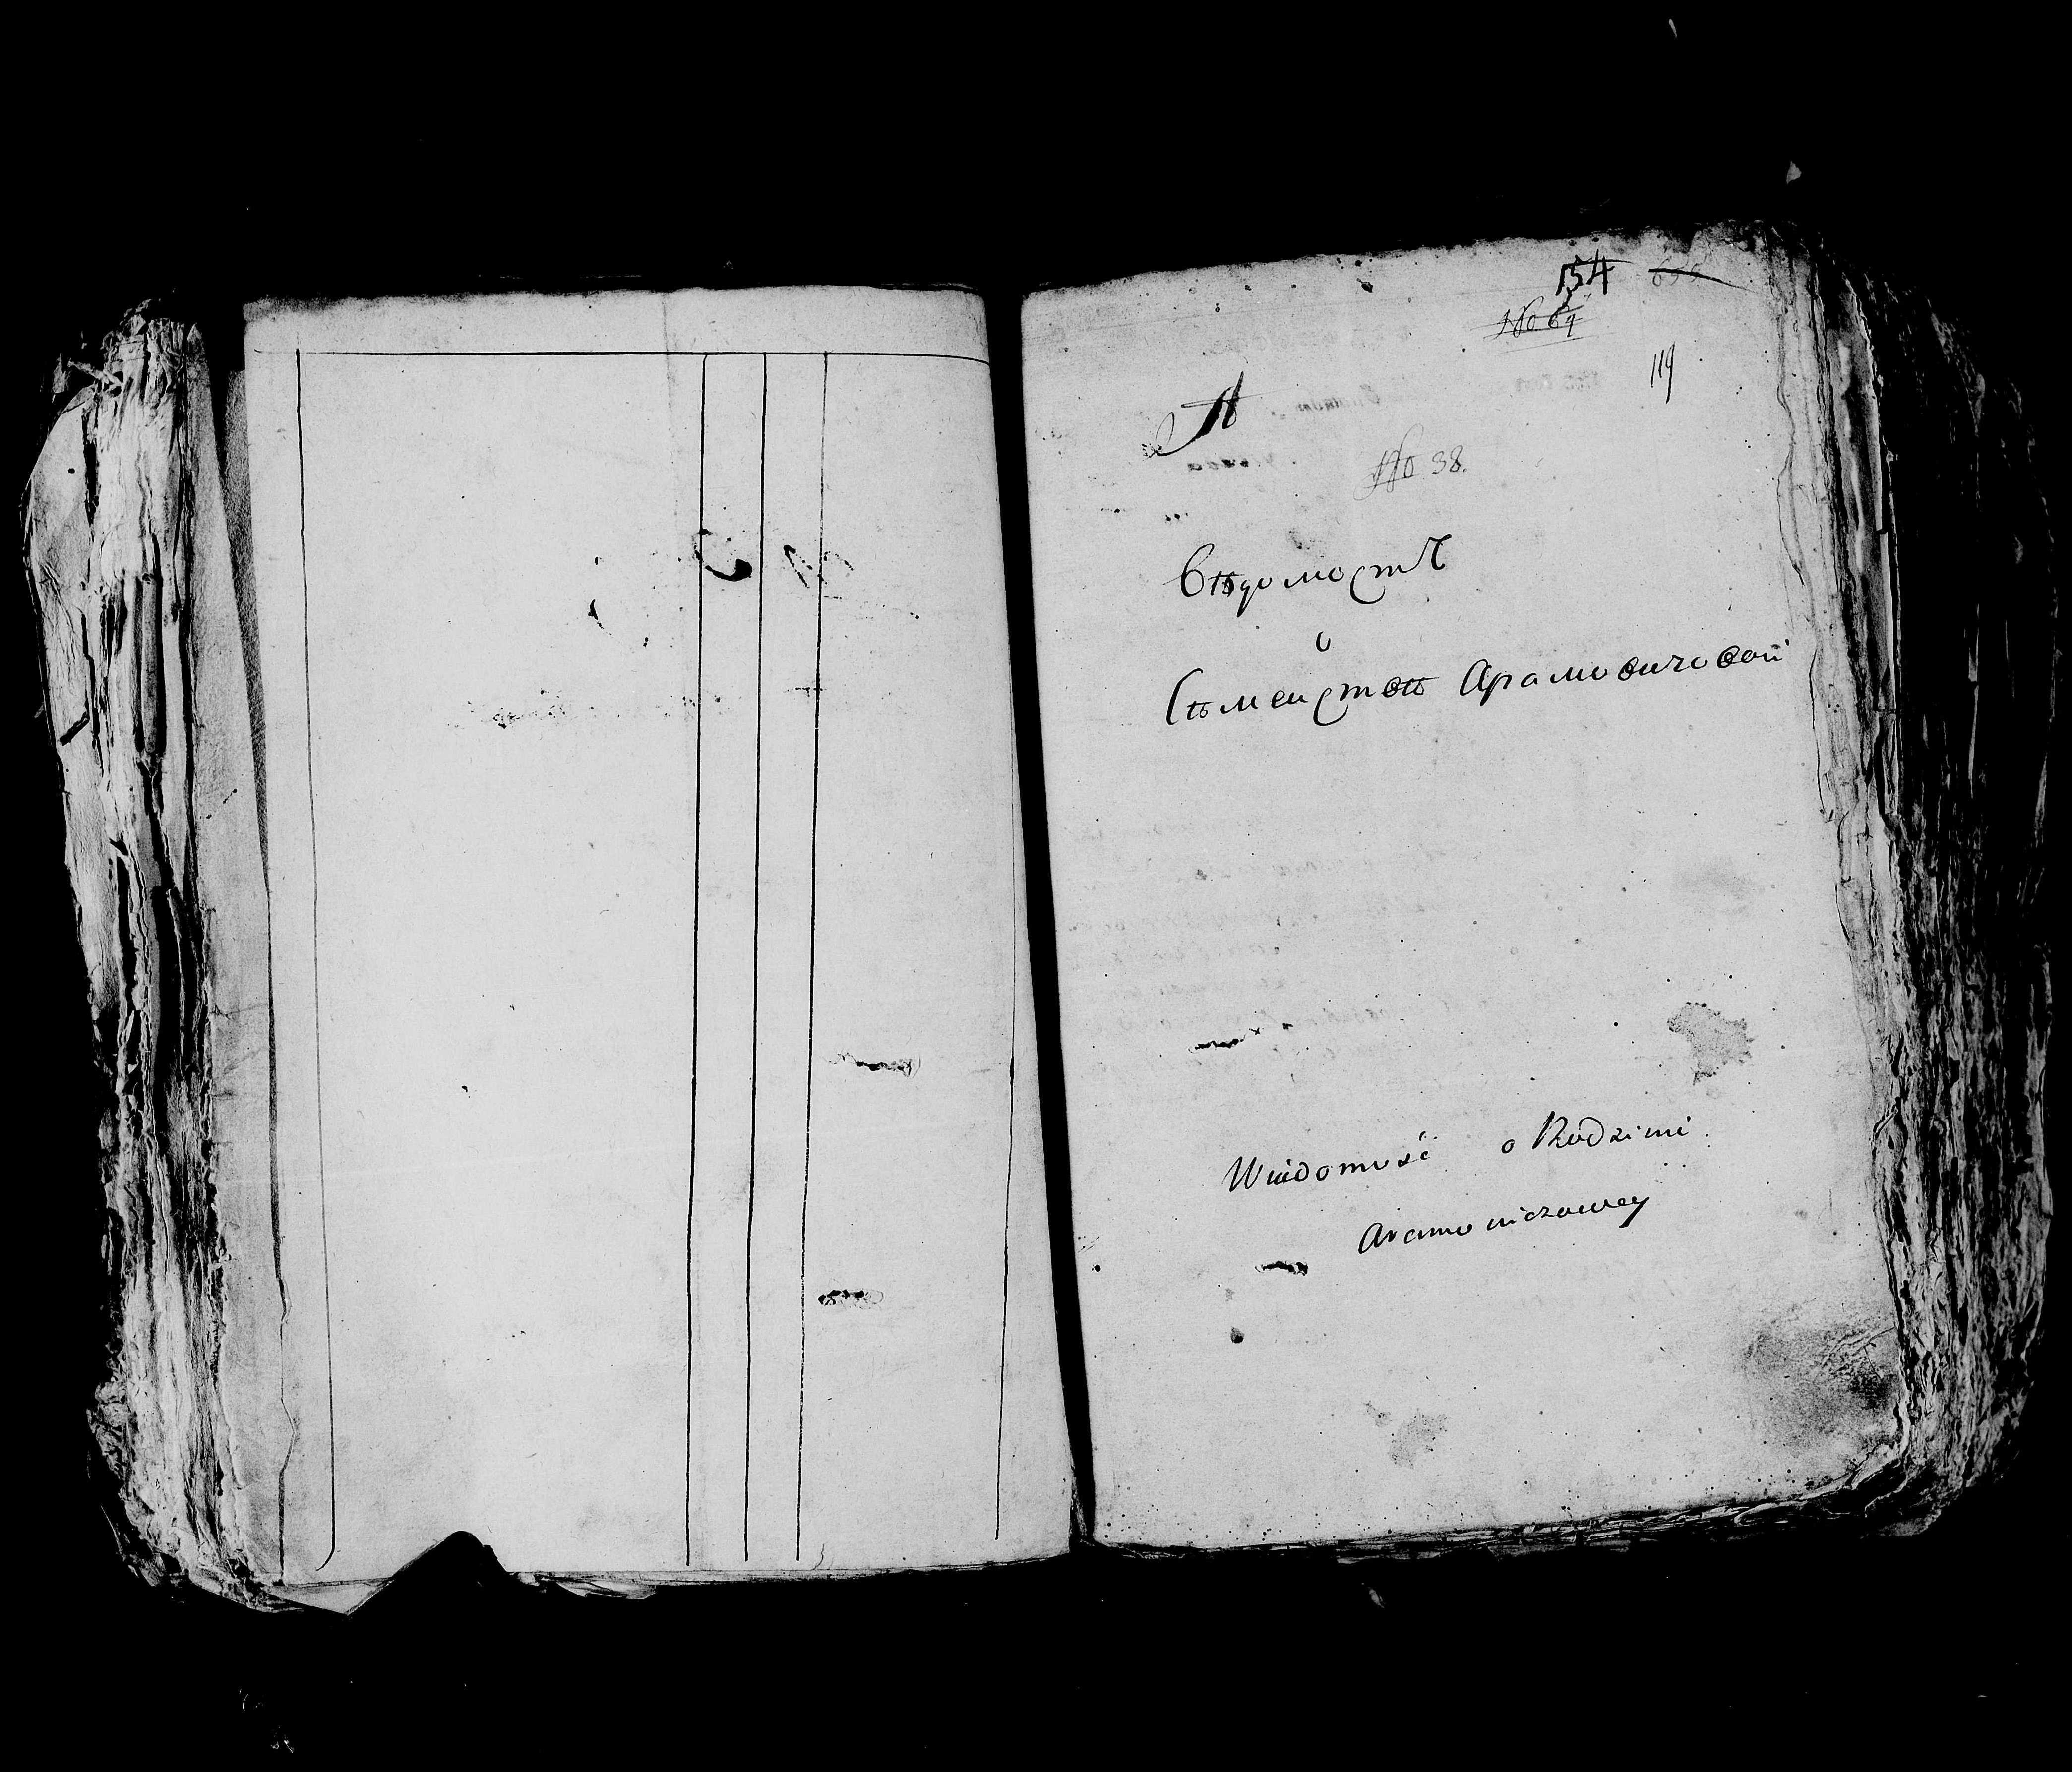 154
No 64
119
A
No 38.
Вѣдомость
о
Сѣмействѣ Арамовичовой
Wiadomość o Rodzini
Aramowiczowey